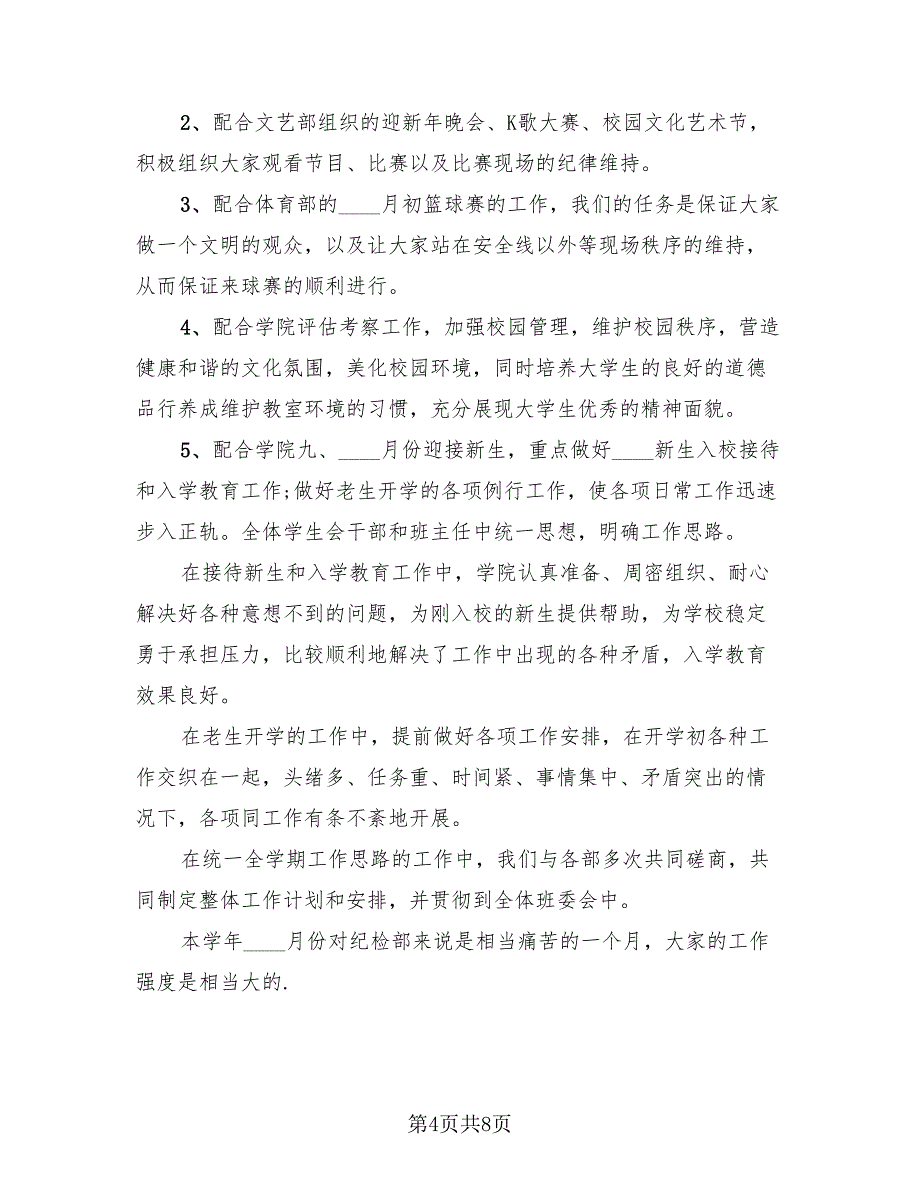 2、配合文艺部组织的迎新年晚会、K歌大赛、校园文化艺术节，
积极组织大家观看节目、比赛以及比赛现场的纪律维持。
3、配合体育部的____月初篮球赛的工作，我们的任务是保证大家
做一个文明的观众，以及让大家站在安全线以外等现场秩序的维持，
从而保证来球赛的顺利进行。
4、配合学院评估考察工作，加强校园管理，维护校园秩序，营造
健康和谐的文化氛围，美化校园环境，同时培养大学生的良好的道德
品行养成维护教室环境的习惯，充分展现大学生优秀的精神面貌。
5、配合学院九、____月份迎接新生，重点做好____新生入校接待
和入学教育工作;做好老生开学的各项例行工作，使各项日常工作迅速
步入正轨。全体学生会干部和班主任中统一思想，明确工作思路。
在接待新生和入学教育工作中，学院认真准备、周密组织、耐心
解决好各种意想不到的问题，为刚入校的新生提供帮助，为学校稳定
勇于承担压力，比较顺利地解决了工作中出现的各种矛盾，入学教育
效果良好。
在老生开学的工作中，提前做好各项工作安排，在开学初各种工
作交织在一起，头绪多、任务重、时间紧、事情集中、矛盾突出的情
况下，各项同工作有条不紊地开展。
在统一全学期工作思路的工作中，我们与各部多次共同磋商，共
同制定整体工作计划和安排，并贯彻到全体班委会中。
本学年____月份对纪检部来说是相当痛苦的一个月，大家的工作
强度是相当大的.
第4页共8页